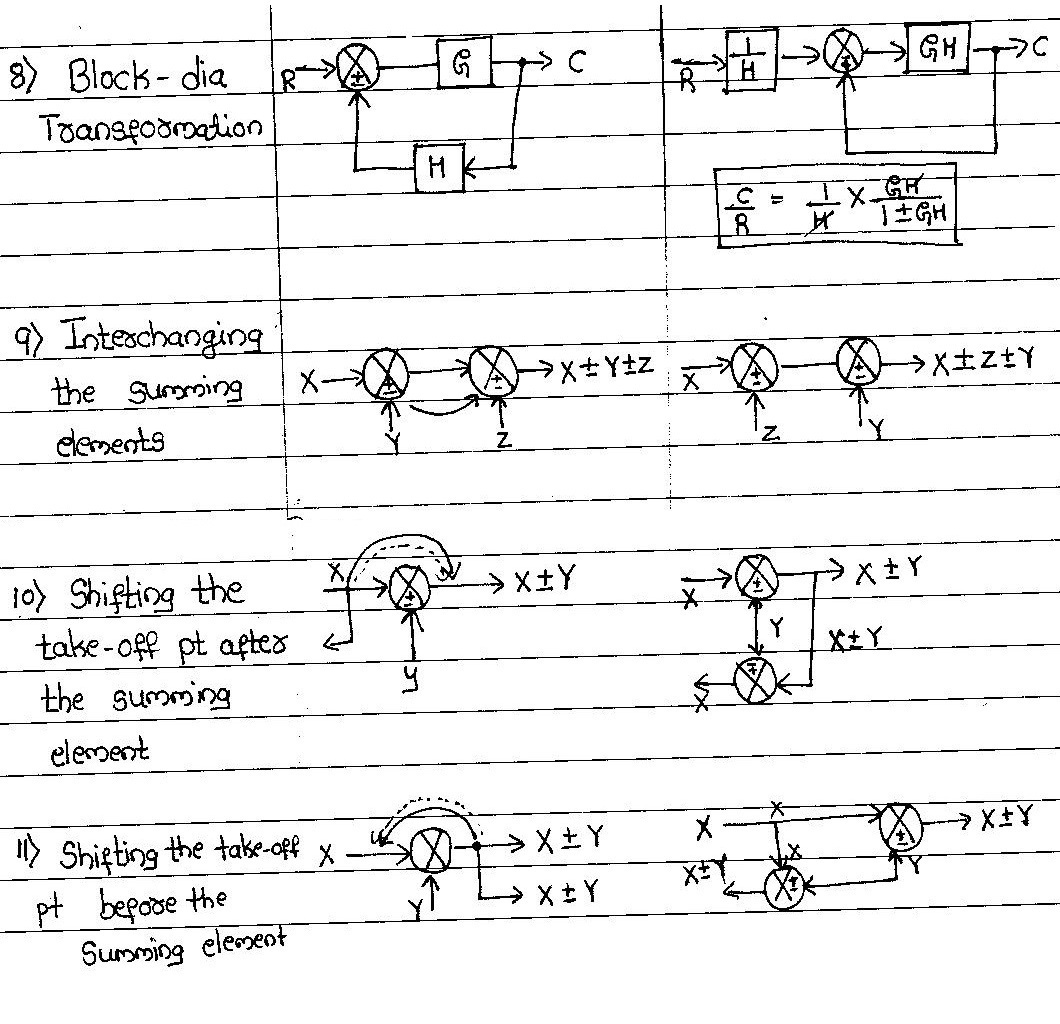 8) Block-dia
Transformation
R ± G C
H
R 1/H ± GH C
C/R = 1/H × GH/1±GH
9) Interchanging
the summing
elements
X ± ± X±Y±Z
Y Z
X ± ± X±Z±Y
Z Y
10) Shifting the
take-off pt after
the summing
element
X ± X±Y
y
X ± X±Y
Y X±Y
∓
X
11) Shifting the take-off
pt before the
Summing element
X X±Y
Y X±Y
X X ± X±Y
X±Y X ± Y